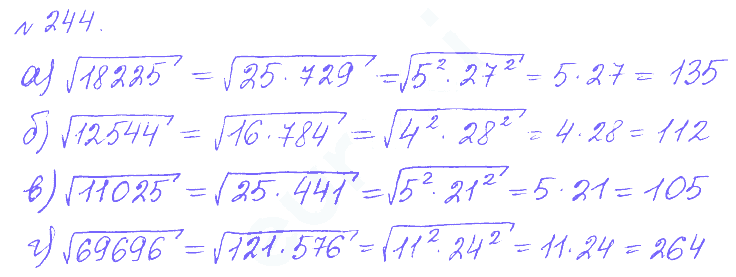 № 244.
а) √18225 = √25·729 = √5²·27² = 5·27 = 135
б) √12544 = √16·784 = √4²·28² = 4·28 = 112
в) √11025 = √25·441 = √5²·21² = 5·21 = 105
г) √69696 = √121·576 = √11²·24² = 11·24 = 264